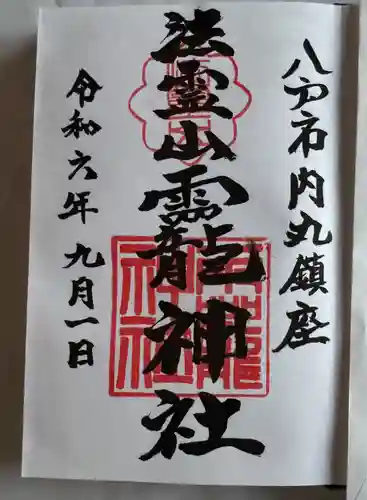 八戸市内丸鎮座
法霊山龗神社
令和六年九月一日